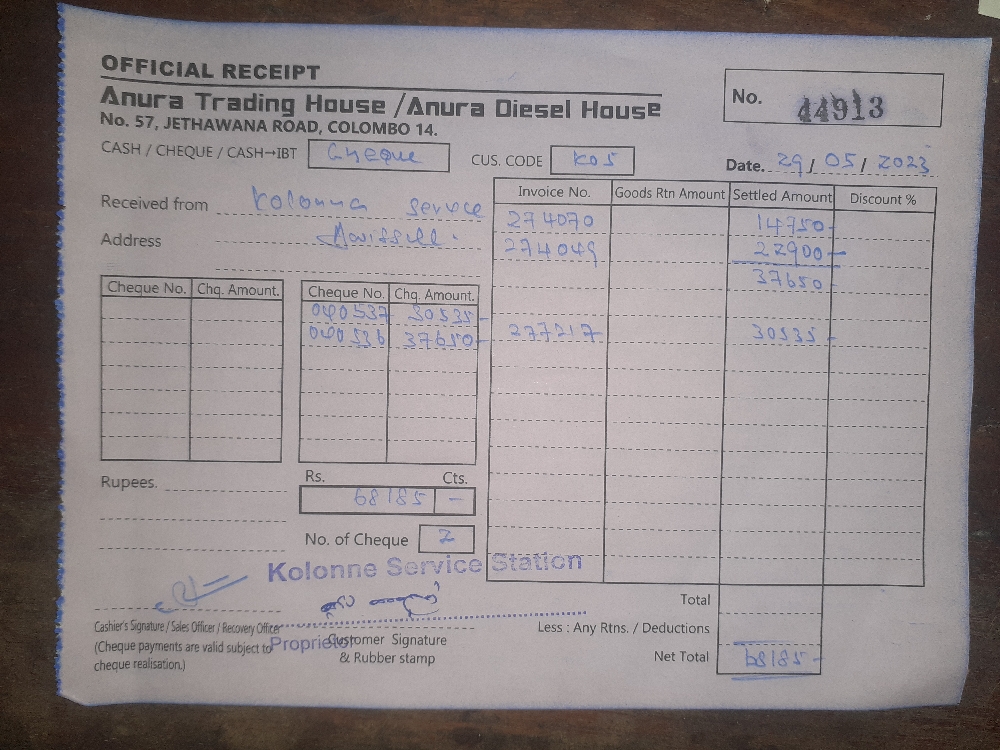 OFFICIAL RECEIPT
Anura Trading House /Anura Diesel House
No. 57, JETHAWANA ROAD, COLOMBO 14.
No. 44913
CASH / CHEQUE / CASH→IBT Cheque
CUS. CODE K05
Date. 29/05/2023
Received from Kolonna Service
Address
Invoice No. Goods Rtn Amount Settled Amount Discount %
274070 14750-
274049 22900-
37650-
277217 30535-
Cheque No. Chq. Amount.
Cheque No. Chq. Amount.
040537 30535-
040536 37650-
Rupees.
Rs. Cts.
68185 -
No. of Cheque 2
Kolonne Service Station
Proprietor
Cashier's Signature / Sales Officer / Recovery Officer
(Cheque payments are valid subject to
cheque realisation.)
Customer Signature
& Rubber stamp
Total
Less : Any Rtns. / Deductions
Net Total 68185-